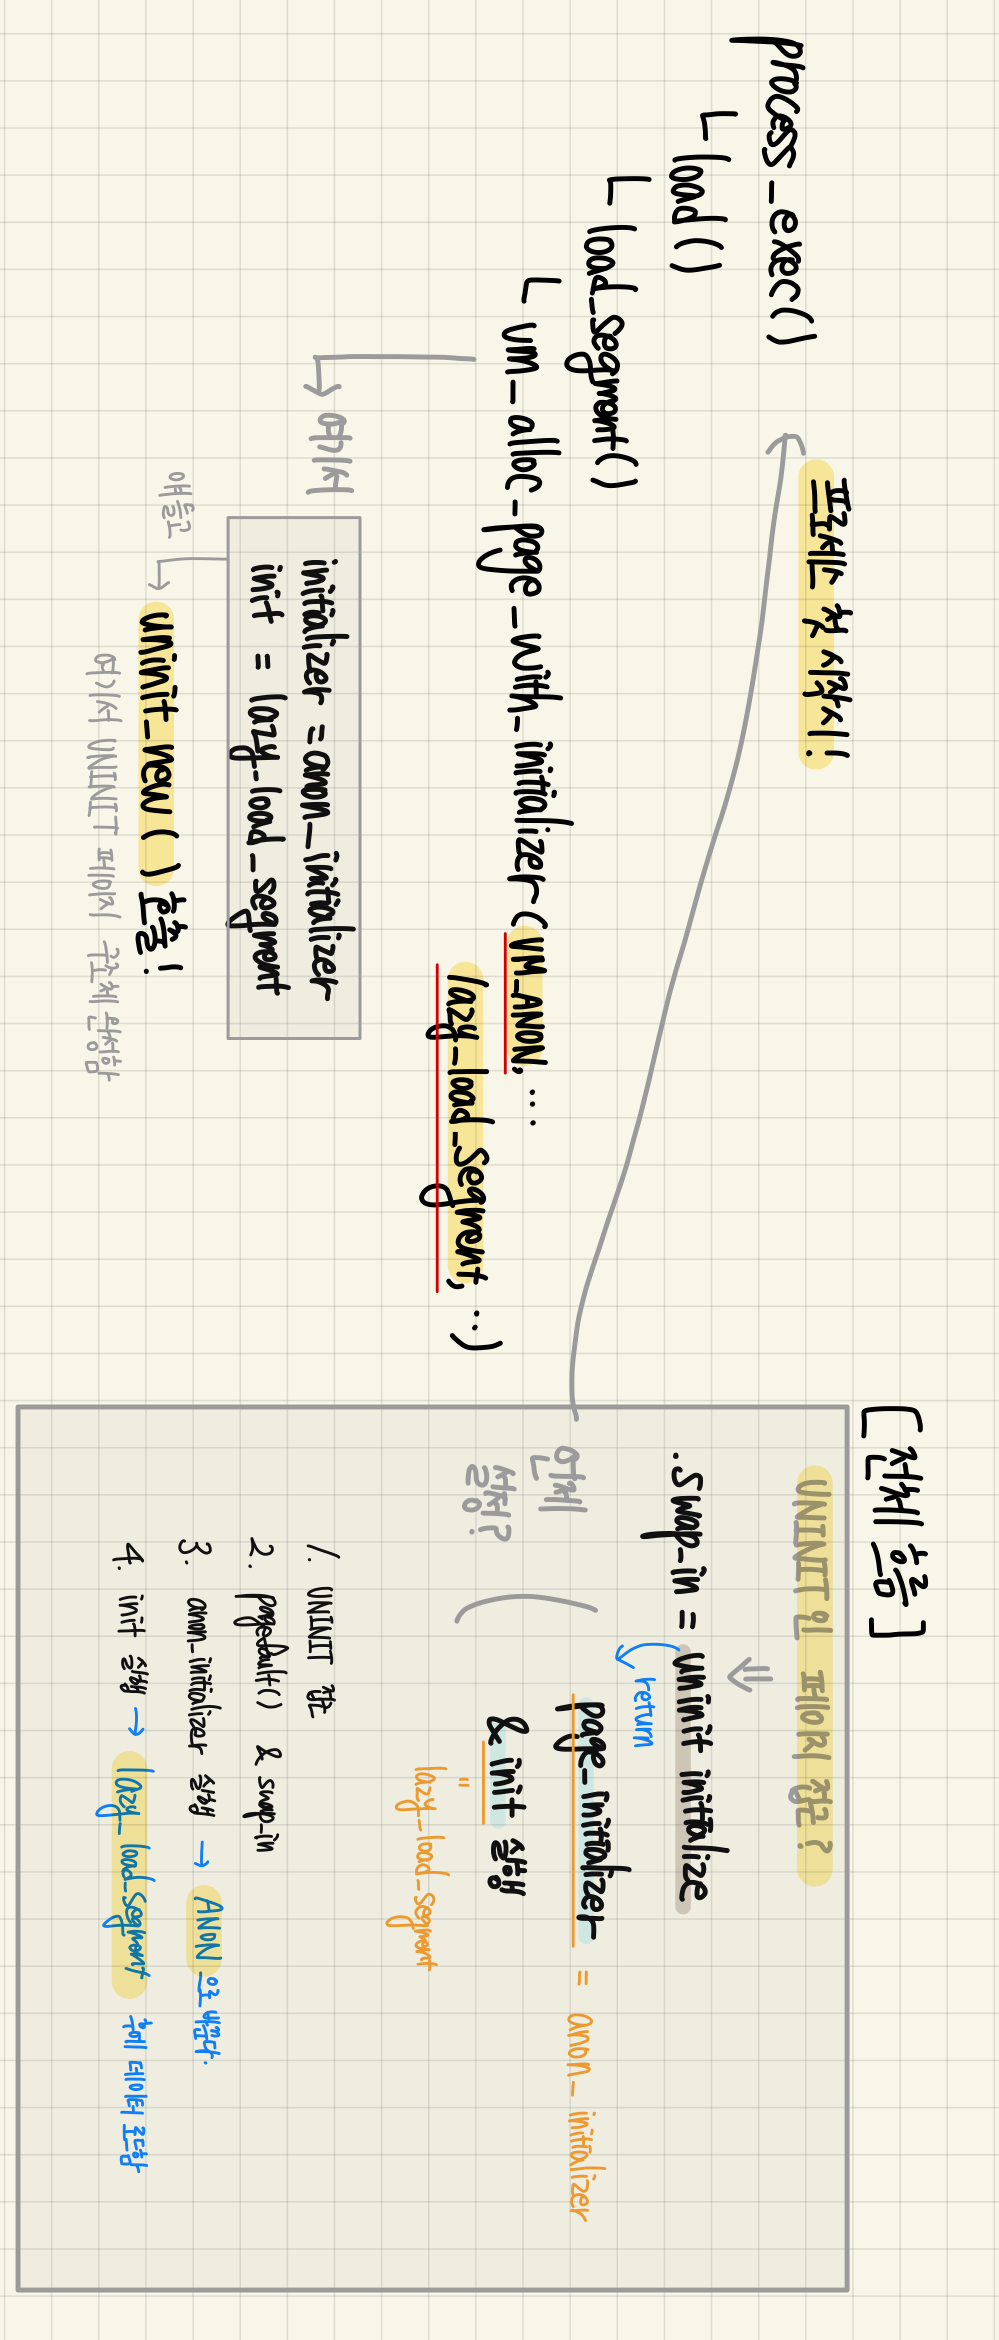 process_exec()
프로세스 첫 시작시!
ㄴ load()
ㄴ load_segment()
ㄴ vm_alloc_page_with_initializer (VM_ANON, ...
lazy_load_segment, ...)
여기서
initializer = anon_initializer
init = lazy_load_segment
얘들고
uninit_new() 호출!
여기서 UNINIT 페이지 구조체 완성함
[전체 흐름]
UNINIT 인 페이지 접근?
.swap_in = uninit initialize
return
언제 설정?
page_initializer = anon_initializer
& init 실행
= lazy_load_segment
1. UNINIT 접근
2. pagefault() & swap_in
3. anon_initializer 실행 → ANON으로 바뀐다.
4. init 실행 → lazy_load_segment 후에 데이터 로드함